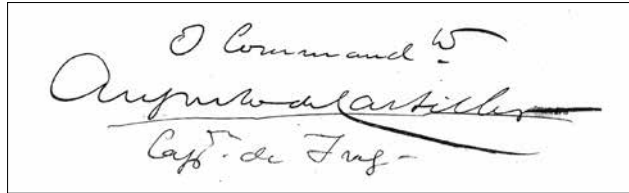 O Command.te
Augusto de Castilho
Cap.m de Frag.